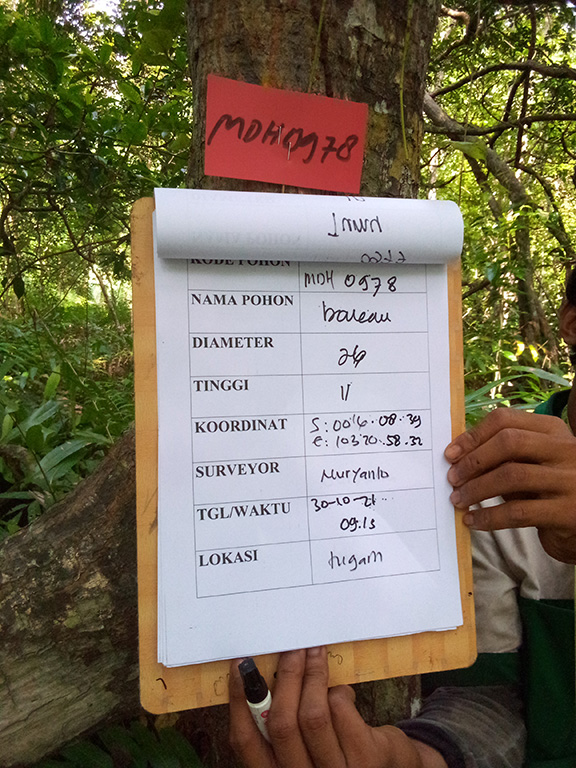 MDH0978
KODE POHON MDH 0978
NAMA POHON
DIAMETER
TINGGI 11
KOORDINAT
E: 10370.58.32
SURVEYOR Nuryanto
TGL/WAKTU 30-10-21
09.13
LOKASI tugam